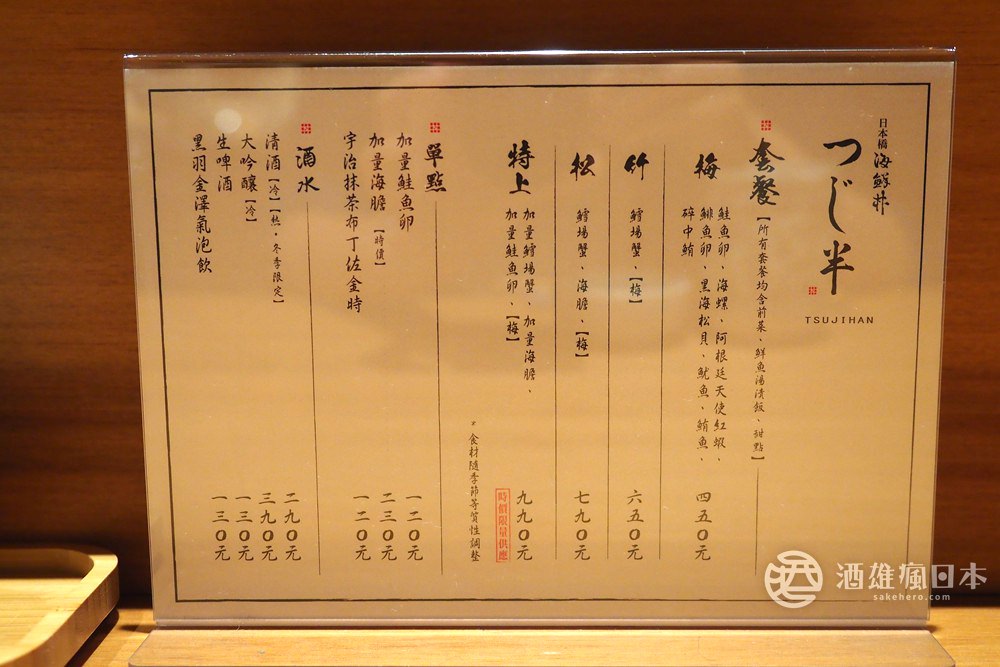 日本橋 海鮮丼
つじ半
TSUJIHAN
套餐【所有套餐均含前菜、鮮魚湯漬飯、甜點】
梅
鮭魚卵、海螺、阿根廷天使紅蝦、
鯡魚卵、黑海松貝、魷魚、鮪魚、
碎中鮪
四五0元
竹 鱈場蟹、【梅】 六五0元
松 鱈場蟹、海膽、【梅】 七九0元
特上
加量鱈場蟹、加量海膽、
加量鮭魚卵、【梅】
九九0元
時價限量供應
*食材隨季節等質性調整
單點
加量鮭魚卵 一二0元
加量海膽【時價】 二三0元
宇治抹茶布丁佐金時 一二0元
酒水
清酒【冷】【熱・冬季限定】 二九0元
大吟釀【冷】 三九0元
生啤酒 一三0元
黑羽金澤氣泡飲 一三0元
酒雄瘋日本
sakehero.com